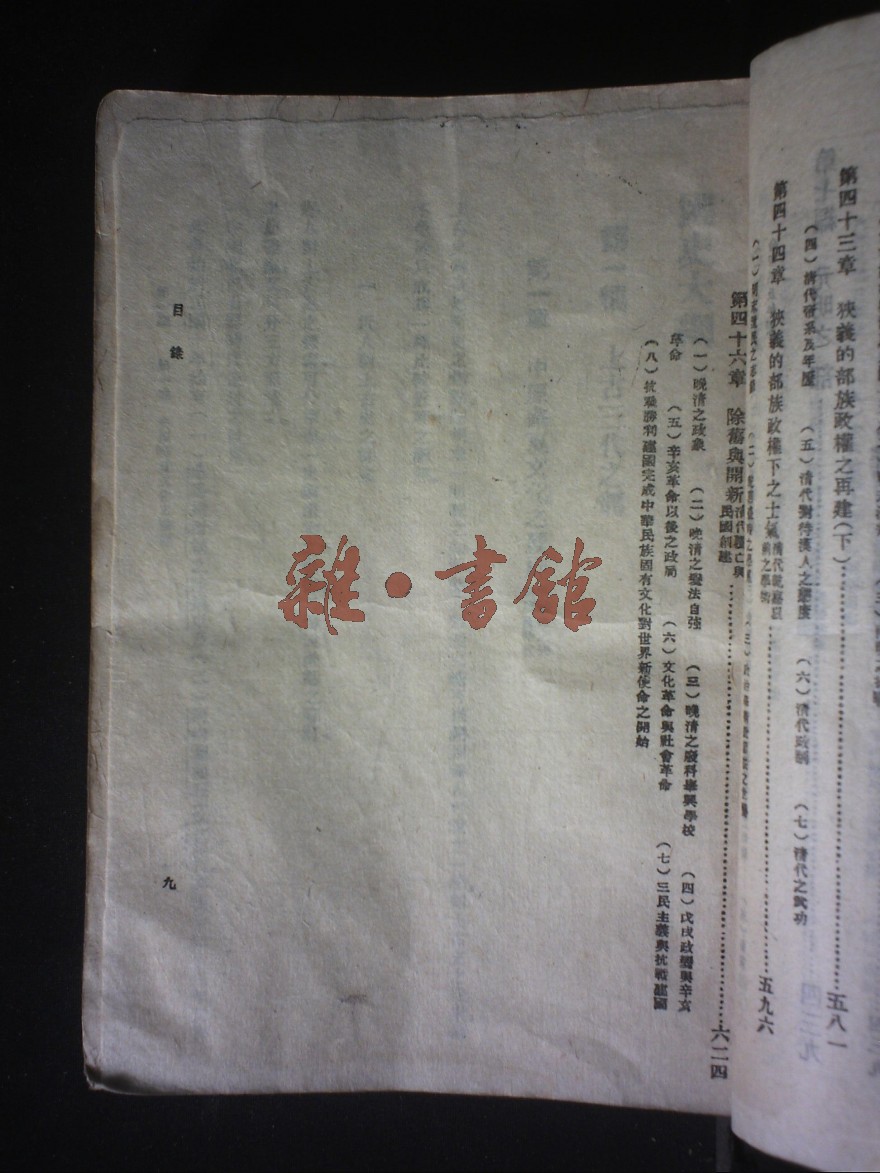 第四十三章 狹義的部族政權之再建(下)……五八一
(四)清代帝系及年歷 (五)清代對待漢人之態度 (六)清代政制 (七)清代之武功
第四十四章 狹義的部族政權下之士氣……五九六
第四十六章 除舊與開新清代覆亡與民國創建……六二四
(一)晚清之政象 (二)晚清之變法自強 (三)晚清之廢科舉興學校 (四)戊戌政變與辛亥
革命 (五)辛亥革命以後之政局 (六)文化革命與社會革命 (七)三民主義與抗戰建國
(八)抗戰勝利建國完成中華民族固有文化對世界新使命之開始
目錄
九
雜·書館